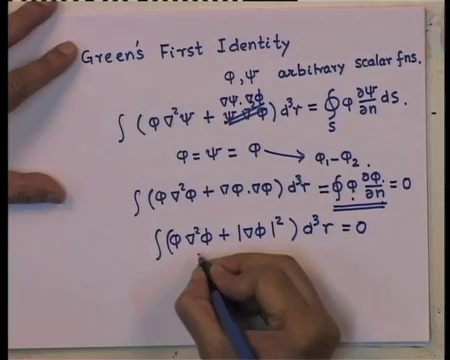 Green's First Identity
φ, ψ arbitrary scalar fns.
∇ψ.∇φ
∫ (φ∇²ψ + ~~ψ.∇φ~~) d³r = ∮_S φ ∂ψ/∂n dS.
φ = ψ = φ → φ₁-φ₂.
∫ (φ∇²φ + ∇φ.∇φ) d³r = ∮ φ ∂φ/∂n = 0
∫(φ∇²φ + |∇φ|²) d³r = 0